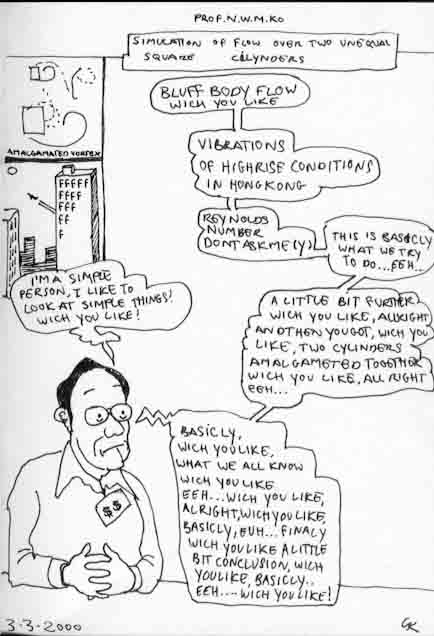 PROF. N.W.M. KO
SIMULATION OF FLOW OVER TWO UNEQUAL
SQUARE CILYNDERS
BLUFF BODY FLOW
WICH YOU LIKE
AMALGAMETED VORTEX
VIBRATIONS
OF HIGHRISE CONDITIONS
IN HONGKONG
FFFFF
FFFF
FFF
FF
F
REYNOLDS
NUMBER
DONT ASK ME(Y)
THIS IS BASICLY
WHAT WE TRY
TO DO...EEH..
I'M A SIMPLE
PERSON, I LIKE TO
LOOK AT SIMPLE THINGS!
WICH YOU LIKE!
A LITTLE BIT FURTHER
WICH YOU LIKE, ALLRIGHT
AN OTHEN YOU GOT, WICH YOU
LIKE, TWO CYLINDERS
AMALGAMETED TOGETHER
WICH YOU LIKE, ALL RIGHT
EEH...
BASICLY,
WICH YOU LIKE,
WHAT WE ALL KNOW
WICH YOU LIKE
EEH...WICH YOU LIKE,
ALRIGHT, WICH YOU LIKE,
BASICLY, EUH... FINALY
WICH YOU LIKE A LITTLE
BIT CONCLUSION, WICH
YOU LIKE, BASICLY..
EEH....WICH YOU LIKE!
$$
3-3-2000
GK